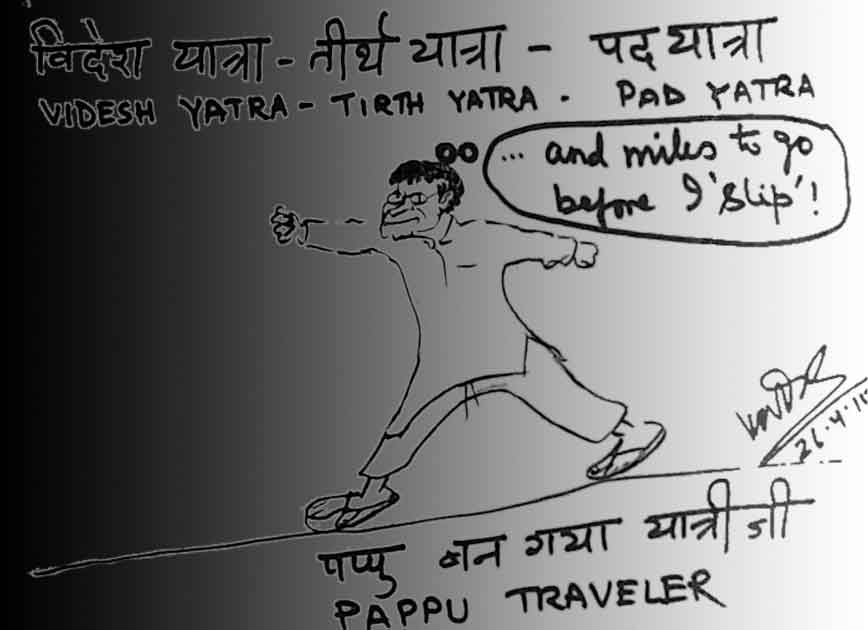 विदेश यात्रा - तीर्थ यात्रा - पद यात्रा
VIDESH YATRA - TIRTH YATRA - PAD YATRA
... and miles to go
before I 'slip'!
26.4.15
पप्पु बन गया यात्री जी
PAPPU TRAVELER